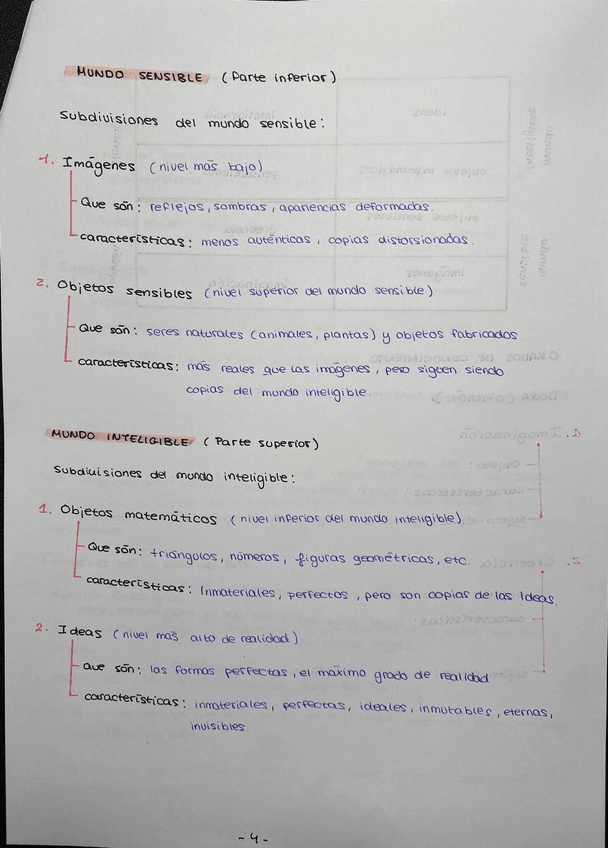 MUNDO SENSIBLE (Parte inferior)
Subdivisiones del mundo sensible:
1. Imágenes (nivel más bajo)
Que són: reflejos, sombras, apariencias deformadas.
características: menos auténticas, copias distorsionadas.
2. Objetos sensibles (nivel superior del mundo sensible)
Que són: seres naturales (animales, plantas) y objetos fabricados
características: más reales que las imágenes, pero siguen siendo
copias del mundo inteligible.
MUNDO INTELIGIBLE (Parte superior)
Subdivisiones del mundo inteligible:
1. Objetos matemáticos (nivel inferior del mundo inteligible)
Que són: triángulos, números, figuras geométricas, etc.
características: Inmateriales, perfectos, pero son copias de las Ideas.
2. Ideas (nivel más alto de realidad)
Que són: las formas perfectas, el máximo grado de realidad
características: inmateriales, perfectas, ideales, inmutables, eternas,
invisibles.
-4-